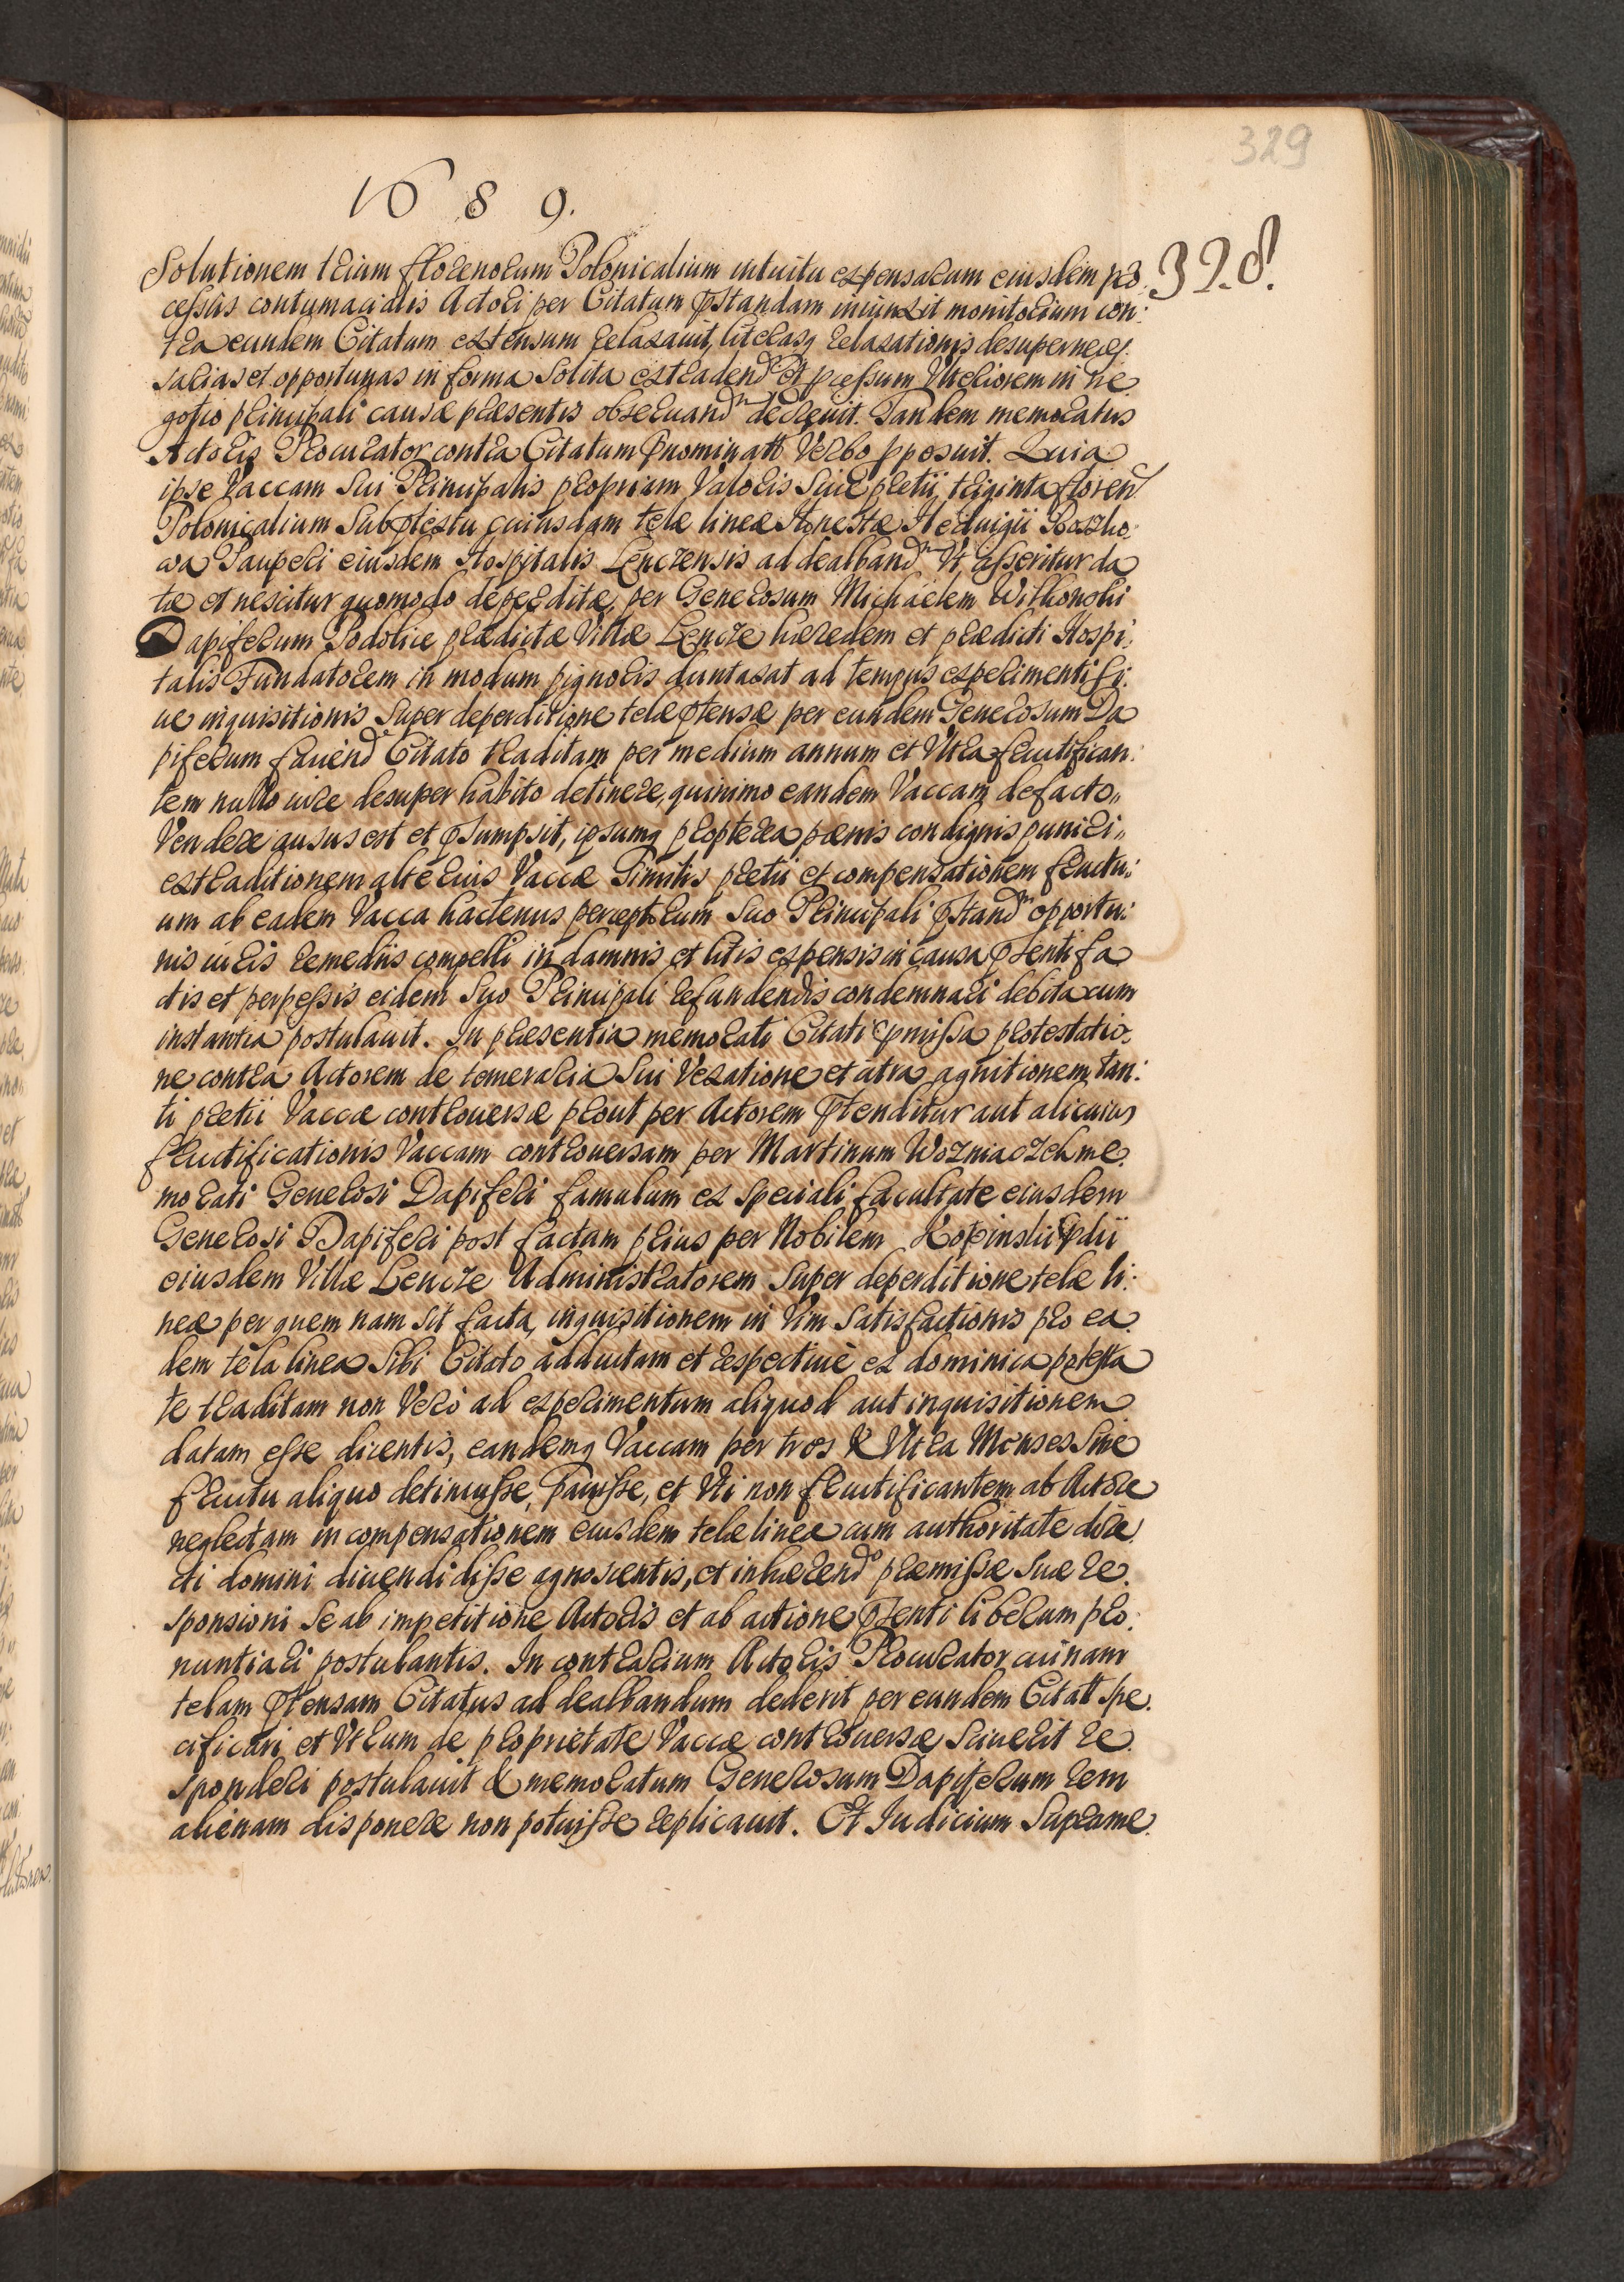 329
1689.
328.
Solutionem trium florenorum Polonicalium intuitu expensarum eiusdem pro
cessus contumacialis Actori per Citatum pstandam iniunxit monitorium con:
tra eundem Citatum extensum relaxauit, literasq relaxationis desuper neces
sarias et opportunas in forma Solita extradend et pcessum Ulteriorem in ne
gotio principali causæ præsentis obseruand decreuit. Tandem memoratus
Actoris Procurator contra Citatum pnominatt Verbo pposuit. Quia
ipse Vaccam Sui Principalis propriam Valoris Siue pretii triginta floren
Polonicalium Sub ptextu cuiusdam telæ lineæ Heduigii
Pauperi eiusdem Hospitalis Lenczensis ad dealband Ut asseritur da
tæ et nescitur quomodo deperditæ, per Generosum Michaelem Witkowski
Dapiferum Podoliæ prædictæ Villæ Lencze hæredem et prædicti Hospi:
talis Fundatorem in modum pignoris duntaxat ad tempus experimenti si:
ue inquisitionis Super deperditione telæ ptensæ per eundem Generosum Da
piferum Citato traditam per medium annum et Ultra fructifican:
tem nullo iure desuper habito detinere, quinimo eandem Vaccam de facto,,
Vendere ausus est et psumpsit, ipsumq propterea pœnis condignis puniri,,
extraditionem alterius Vaccæ Similis pretii et compensationem fructu:
um ab eadem Vacca hactenus perceptorum Suo Principali pstand opportu:
nis iuris remediis compelli in damnis et litis expensis in causa psenti fa
ctis et perpessis eidem Suo Principali refundendis condemnari debita cum
instantia postulauit. In præsentia memorati Citati pmissa protestatio:
ne contra Actorem de temeraria Sui Vexatione et citra agnitionem tan:
ti pretii Vaccæ controuersæ prout per Actorem ptenditur aut alicuius
fructificationis Vaccam controuersam per Martinum Wozniaczek me:
morati Generosi Dapiferi famulum ex Speciali facultate eiusdem
Generosi Dapiferi post factam prius per Nobilem
eiusdem Villæ Lencze Administratorem Super deperditione telæ li:
neæ per quem nam sit facta, inquisitionem in Vim Satisfactionis pro ea
dem tela linea Sibi Citato adductam et respectiuè ex dominica potesta
te traditam non Verò ad experimentum aliquod aut inquisitionem
datam esse dicentis, eandemq Vaccam per tres & Ultra Menses Sine
fructu aliquo detinuisse, pauisse, et Uti non fructificantem ab Actore
neglectam in compensationem eiusdem telæ lineæ cum authoritate dire
cti domini diuendidisse agnoscentis, et inhærend præmissæ Suæ re
sponsioni Se ab impetitione Actoris et ab actione psenti liberum pro:
nuntiari postulantis. In contrarium Actoris Procurator cuinam
telam ptensam Citatus ad dealbandum dederit per eundem Citatt spe
cificari et Utrum de proprietate Vaccæ controuersæ Sciuerit re
sponderi postulauit & memoratum Generosum Dapiferum rem
alienam disponere non potuisse replicauit. Et Iudicium Suprame